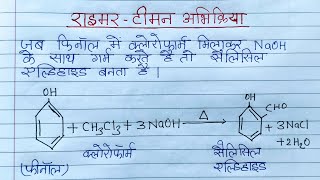 राइमर-टीमन अभिक्रिया
जब फिनॉल में क्लोरोफार्म मिलाकर NaOH
के साथ गर्म करते है तो सैलिसिल
एल्डिहाइड बनता है।
OH
OH
CHO
+ CH3Cl3 + 3NaOH → Δ
+ 3NaCl
+ 2H2O
(फीनॉल)
क्लोरोफॉर्म
सैलिसिल
एल्डिहाइड